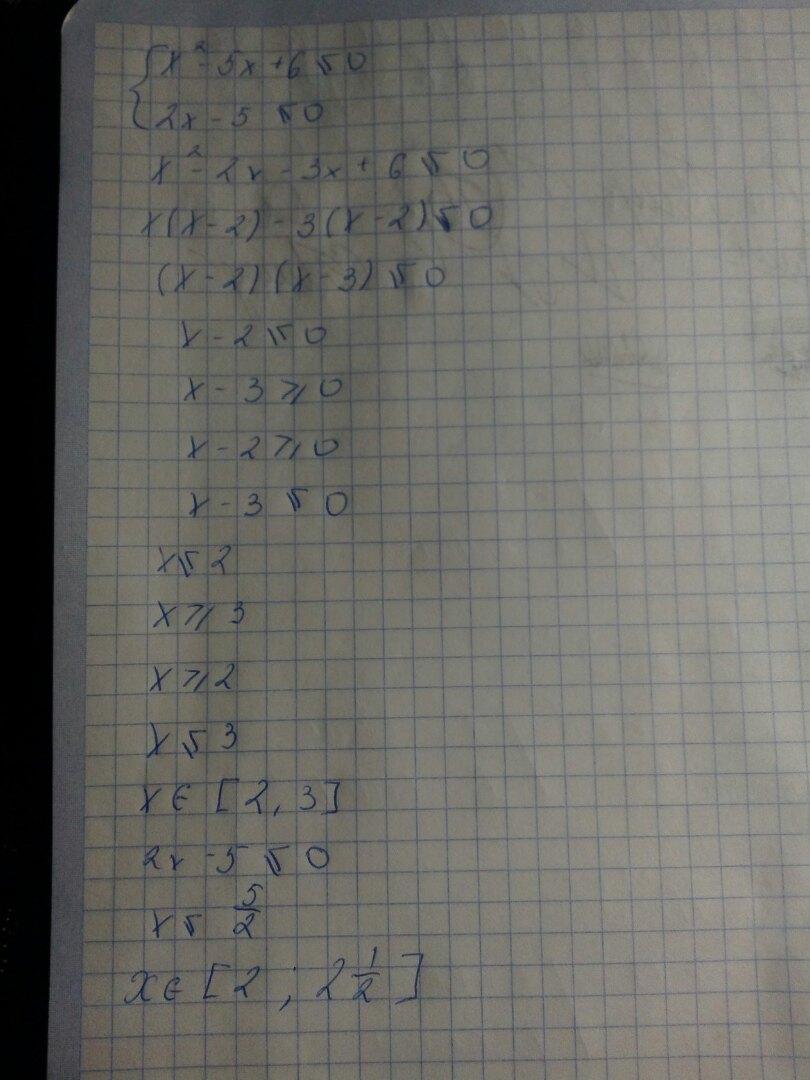 {x² - 5x + 6 ≤ 0
2x - 5 ≤ 0
x² - 2x - 3x + 6 ≤ 0
x(x - 2) - 3(x - 2) ≤ 0
(x - 2)(x - 3) ≤ 0
x - 2 ≤ 0
x - 3 ≥ 0
x - 2 ≥ 0
x - 3 ≤ 0
x ≤ 2
x ≥ 3
x ≥ 2
x ≤ 3
x ∈ [2, 3]
2x - 5 ≤ 0
x ≤ 5/2
x ∈ [2 ; 2 1/2]